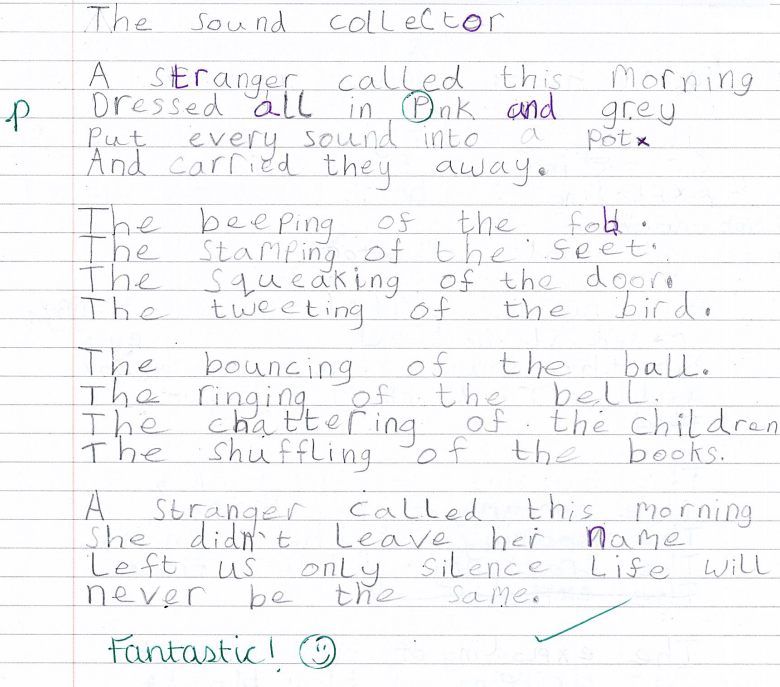 The sound collector
A stranger called this morning
p
Dressed all in Pnk and grey
Put every sound into a pot
And carried they away.
The beeping of the fob.
The stamping of the feet.
The squeaking of the door.
The tweeting of the bird.
The bouncing of the ball.
The ringing of the bell.
The chattering of the children
The shuffling of the books.
A stranger called this morning
She didn't leave her name
Left us only silence Life will
never be the same.
Fantastic!